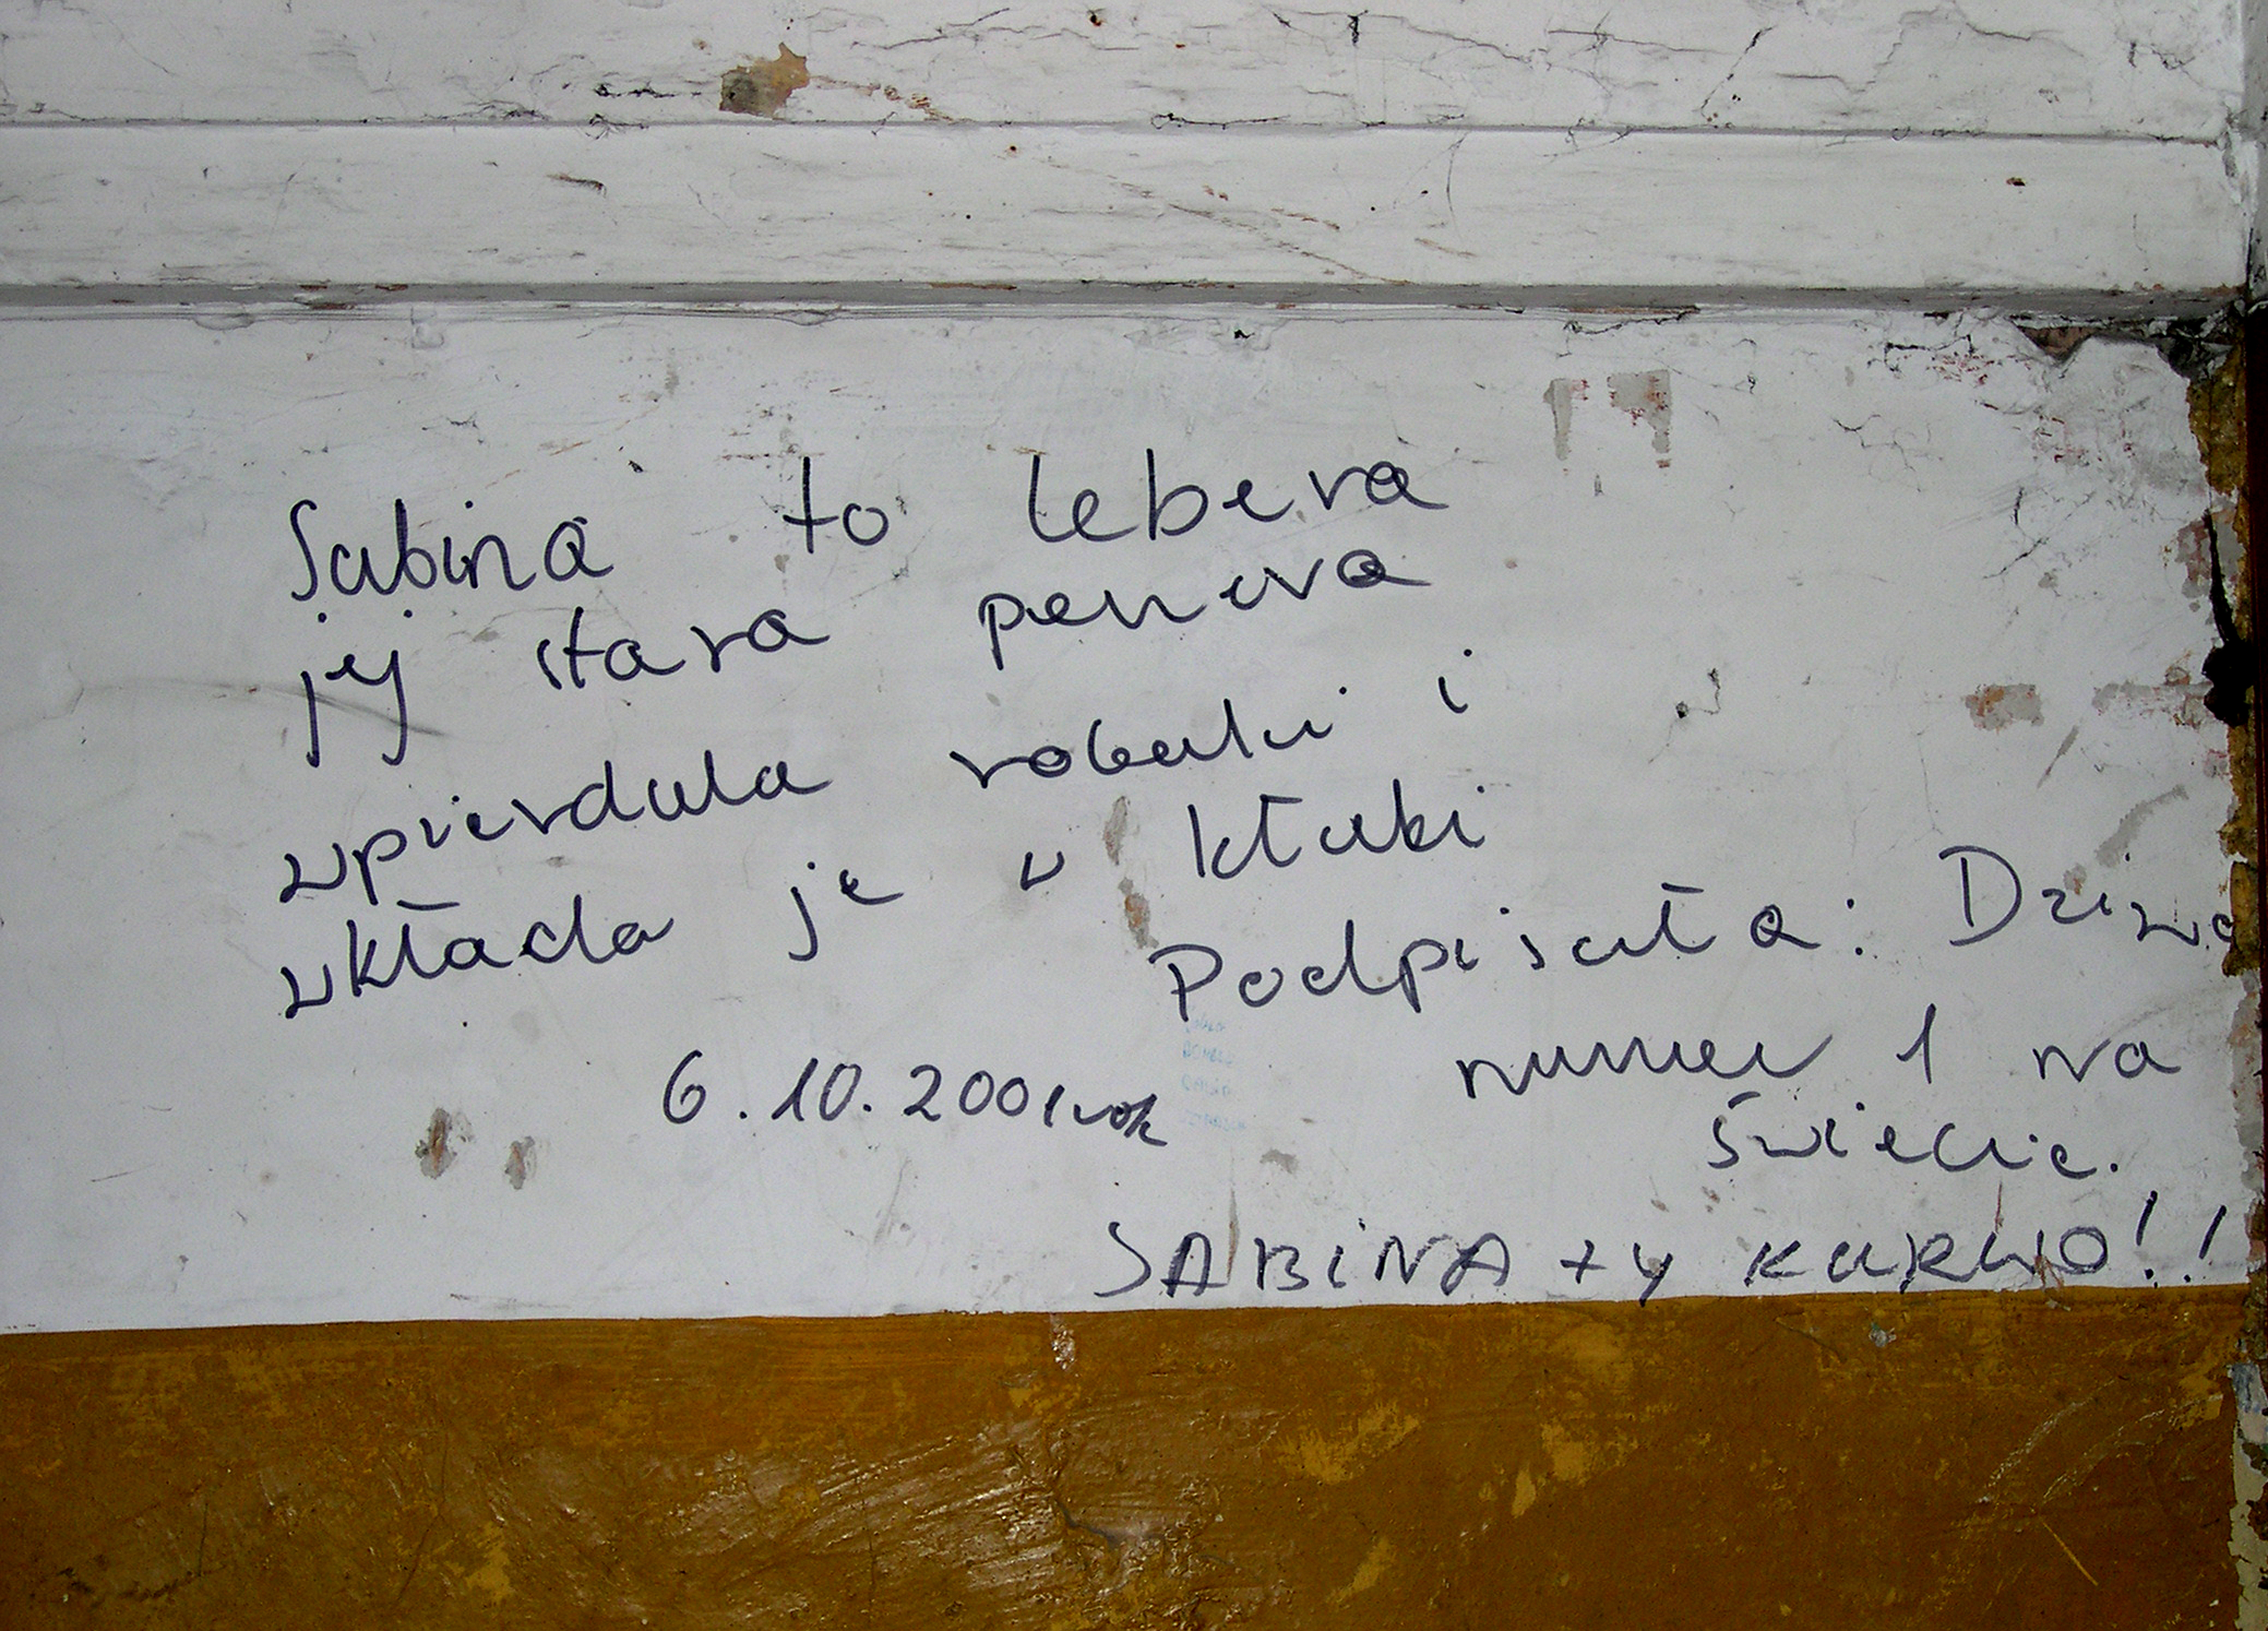 Sabina to lebera
jej stara penera
wpierdala robaki i
wkłada je w kłaki
Podpisała: Dziwa
numer 1 na
świecie.
6.10.2001rok
SABINA ty KURWO!!